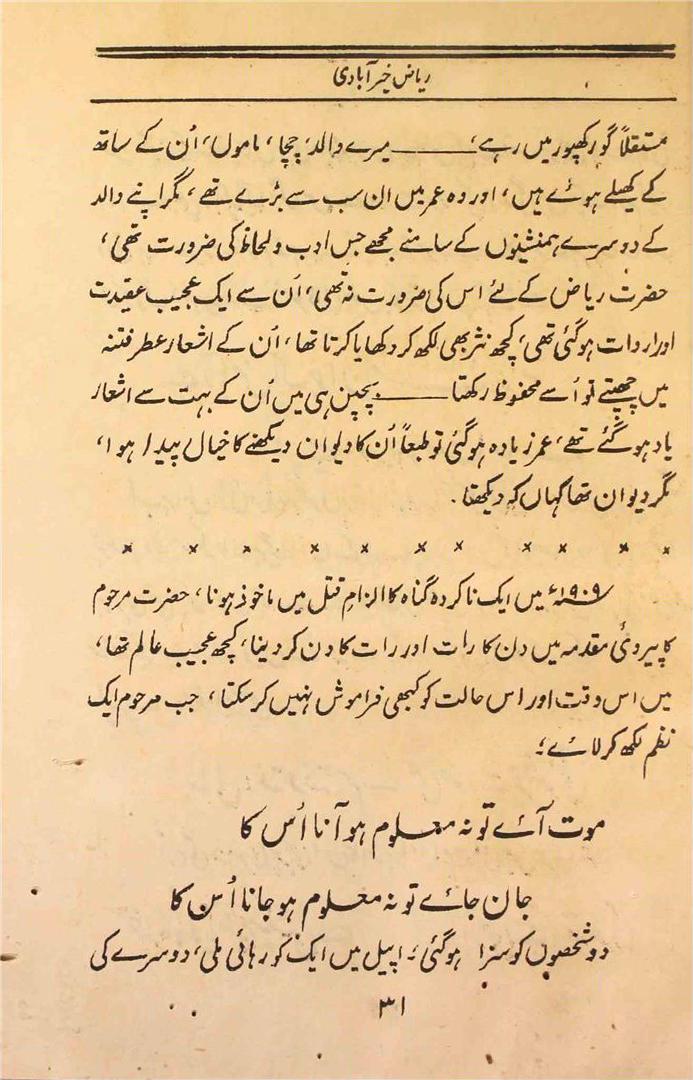 ریاض خیر آبادی
مستقلاً گورکھپور میں رہے، ——— میرے والد، چچا، ماموں، اُن کے ساتھ
کے کھیلے ہوئے ہیں، اور وہ عمر میں ان سب سے بڑے تھے، مگر اپنے والد
کے دوسرے ہمنشینوں کے سامنے مجھے جس ادب و لحاظ کی ضرورت تھی،
حضرت ریاض کے لئے اس کی ضرورت نہ تھی، اُن سے ایک عجیب عقیدت
اور اردات ہوگئی تھی، کچھ نثر بھی لکھ کر دکھایا کرتا تھا، اُن کے اشعار عطر فتنہ
میں چھپتے تو اُسے محفوظ رکھتا ——— بچپن ہی میں اُن کے بہت سے اشعار
یاد ہو گئے تھے، عمر زیادہ ہوگئی تو طبعاً اُن کا دیوان دیکھنے کا خیال پیدا ہوا،
مگر دیوان تھا کہاں کہ دیکھتا۔
× × × × × × × × × × ×
۱۹۰۹ء میں ایک ناکردہ گناہ کا الزام قتل میں ماخوذ ہونا، حضرت مرحوم
کا پیروئ مقدمہ میں دن کا رات اور رات کا دن کر دینا، کچھ عجیب عالم تھا،
میں اس وقت اور اس حالت کو کبھی فراموش نہیں کر سکتا، جب مرحوم ایک
نظم لکھ کر لائے؛
موت آئے تو نہ معلوم ہو آنا اُس کا
جان جائے تو نہ معلوم ہو جانا اُس کا
دو شخصوں کو سزا ہوگئی، اپیل میں ایک کو رہائی ملی، دوسرے کی
۳۱